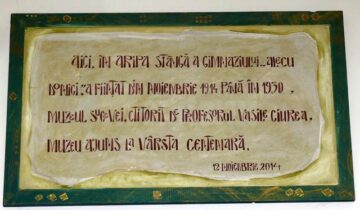 AICI, ÎN ARIPA STÂNGĂ A GIMNAZIULUI „ALECU
DONICI” A FIINȚAT DIN NOIEMBRIE 1914 PÂNĂ ÎN 1930,
MUZEUL SUCEVEI, CTITORIT DE PROFESORUL VASILE CIUREA,
MUZEU AJUNS LA VÂRSTA CENTENARĂ.
12 NOIEMBRIE 2014